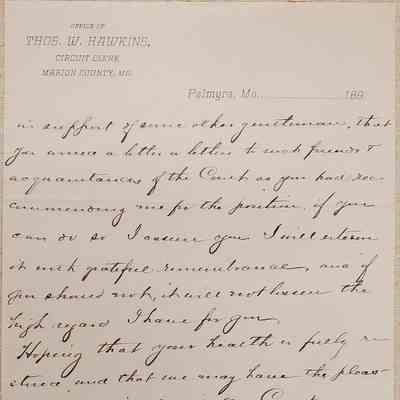 OFFICE OF
THOS. W. HAWKINS,
CIRCUIT CLERK
MARION COUNTY, MO.
Palmyra, Mo. 189
in support of some other gentleman, that
you a letter a letter to such friends &
acquaintances of the Court as you had rec
ommending me for the position, if you
can do so I assure you I will esteem
it with grateful remembrance, and if
you should not, it will not lessen the
high regard I have for you.
Hoping that your health is fully re
stored and that we may have the pleas